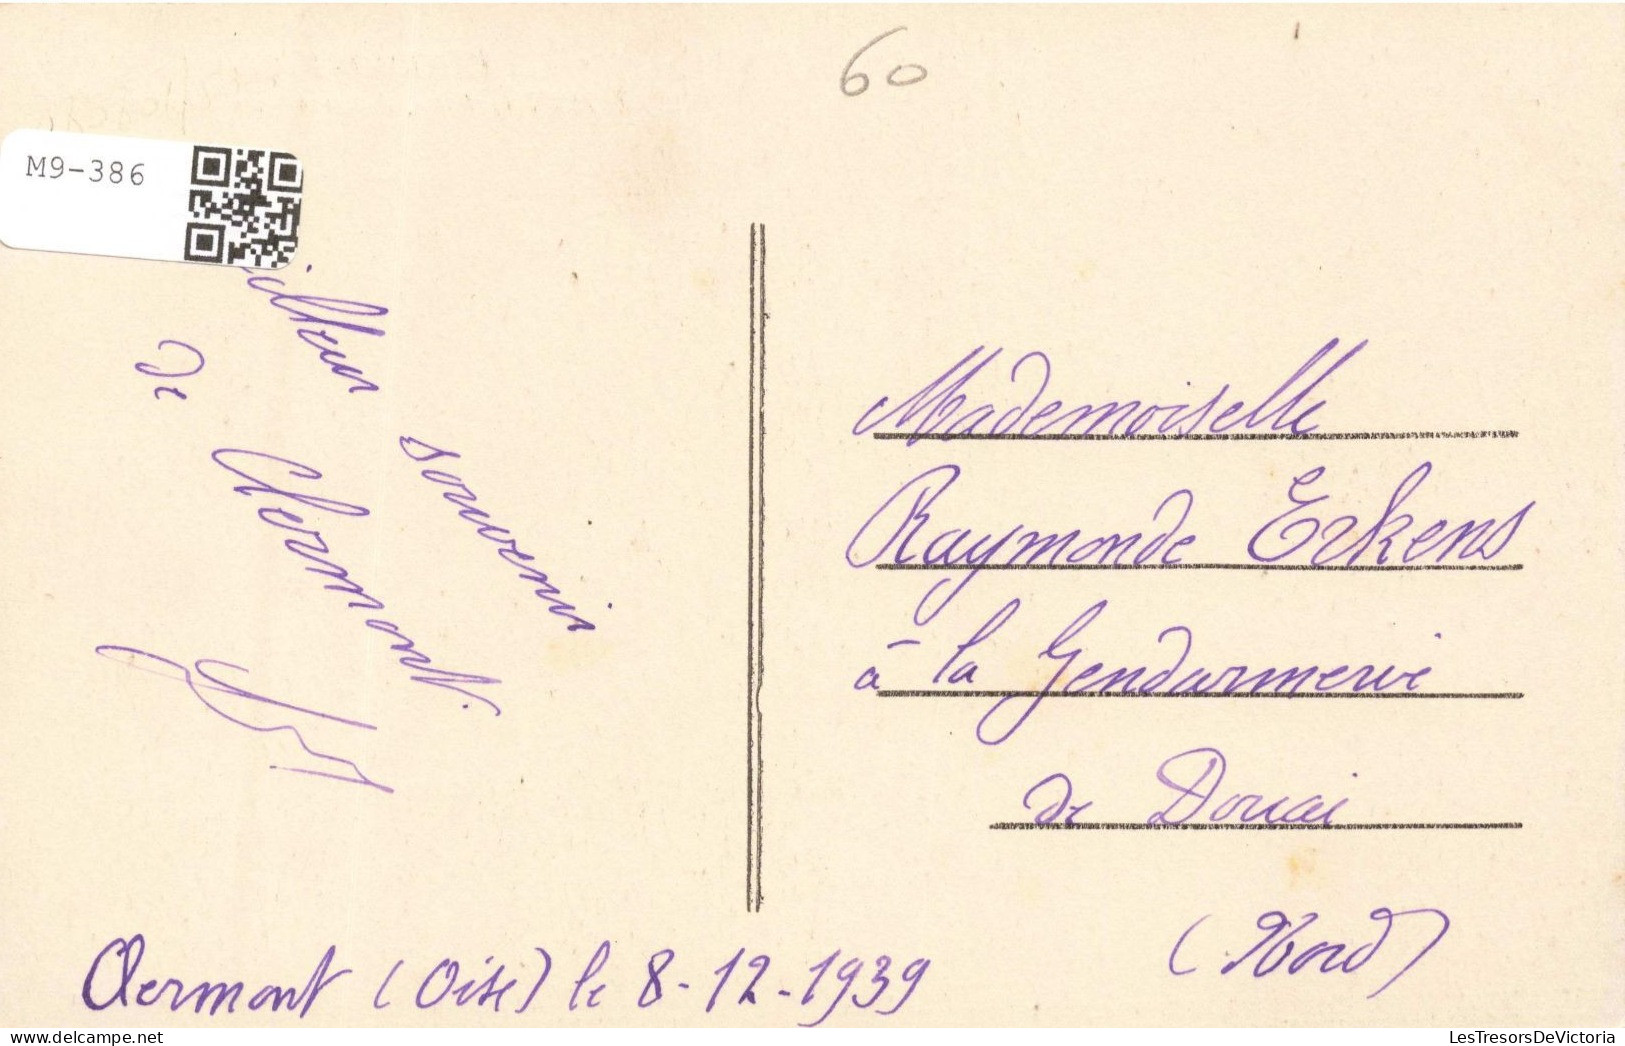 60
M9-386
illeur souvenir
de Clermont.
Mademoiselle
Raymonde Erkens
à la Gendarmerie
de Douai
(Nord)
Clermont (Oise) le 8-12-1939
LesTresorsDeVictoria